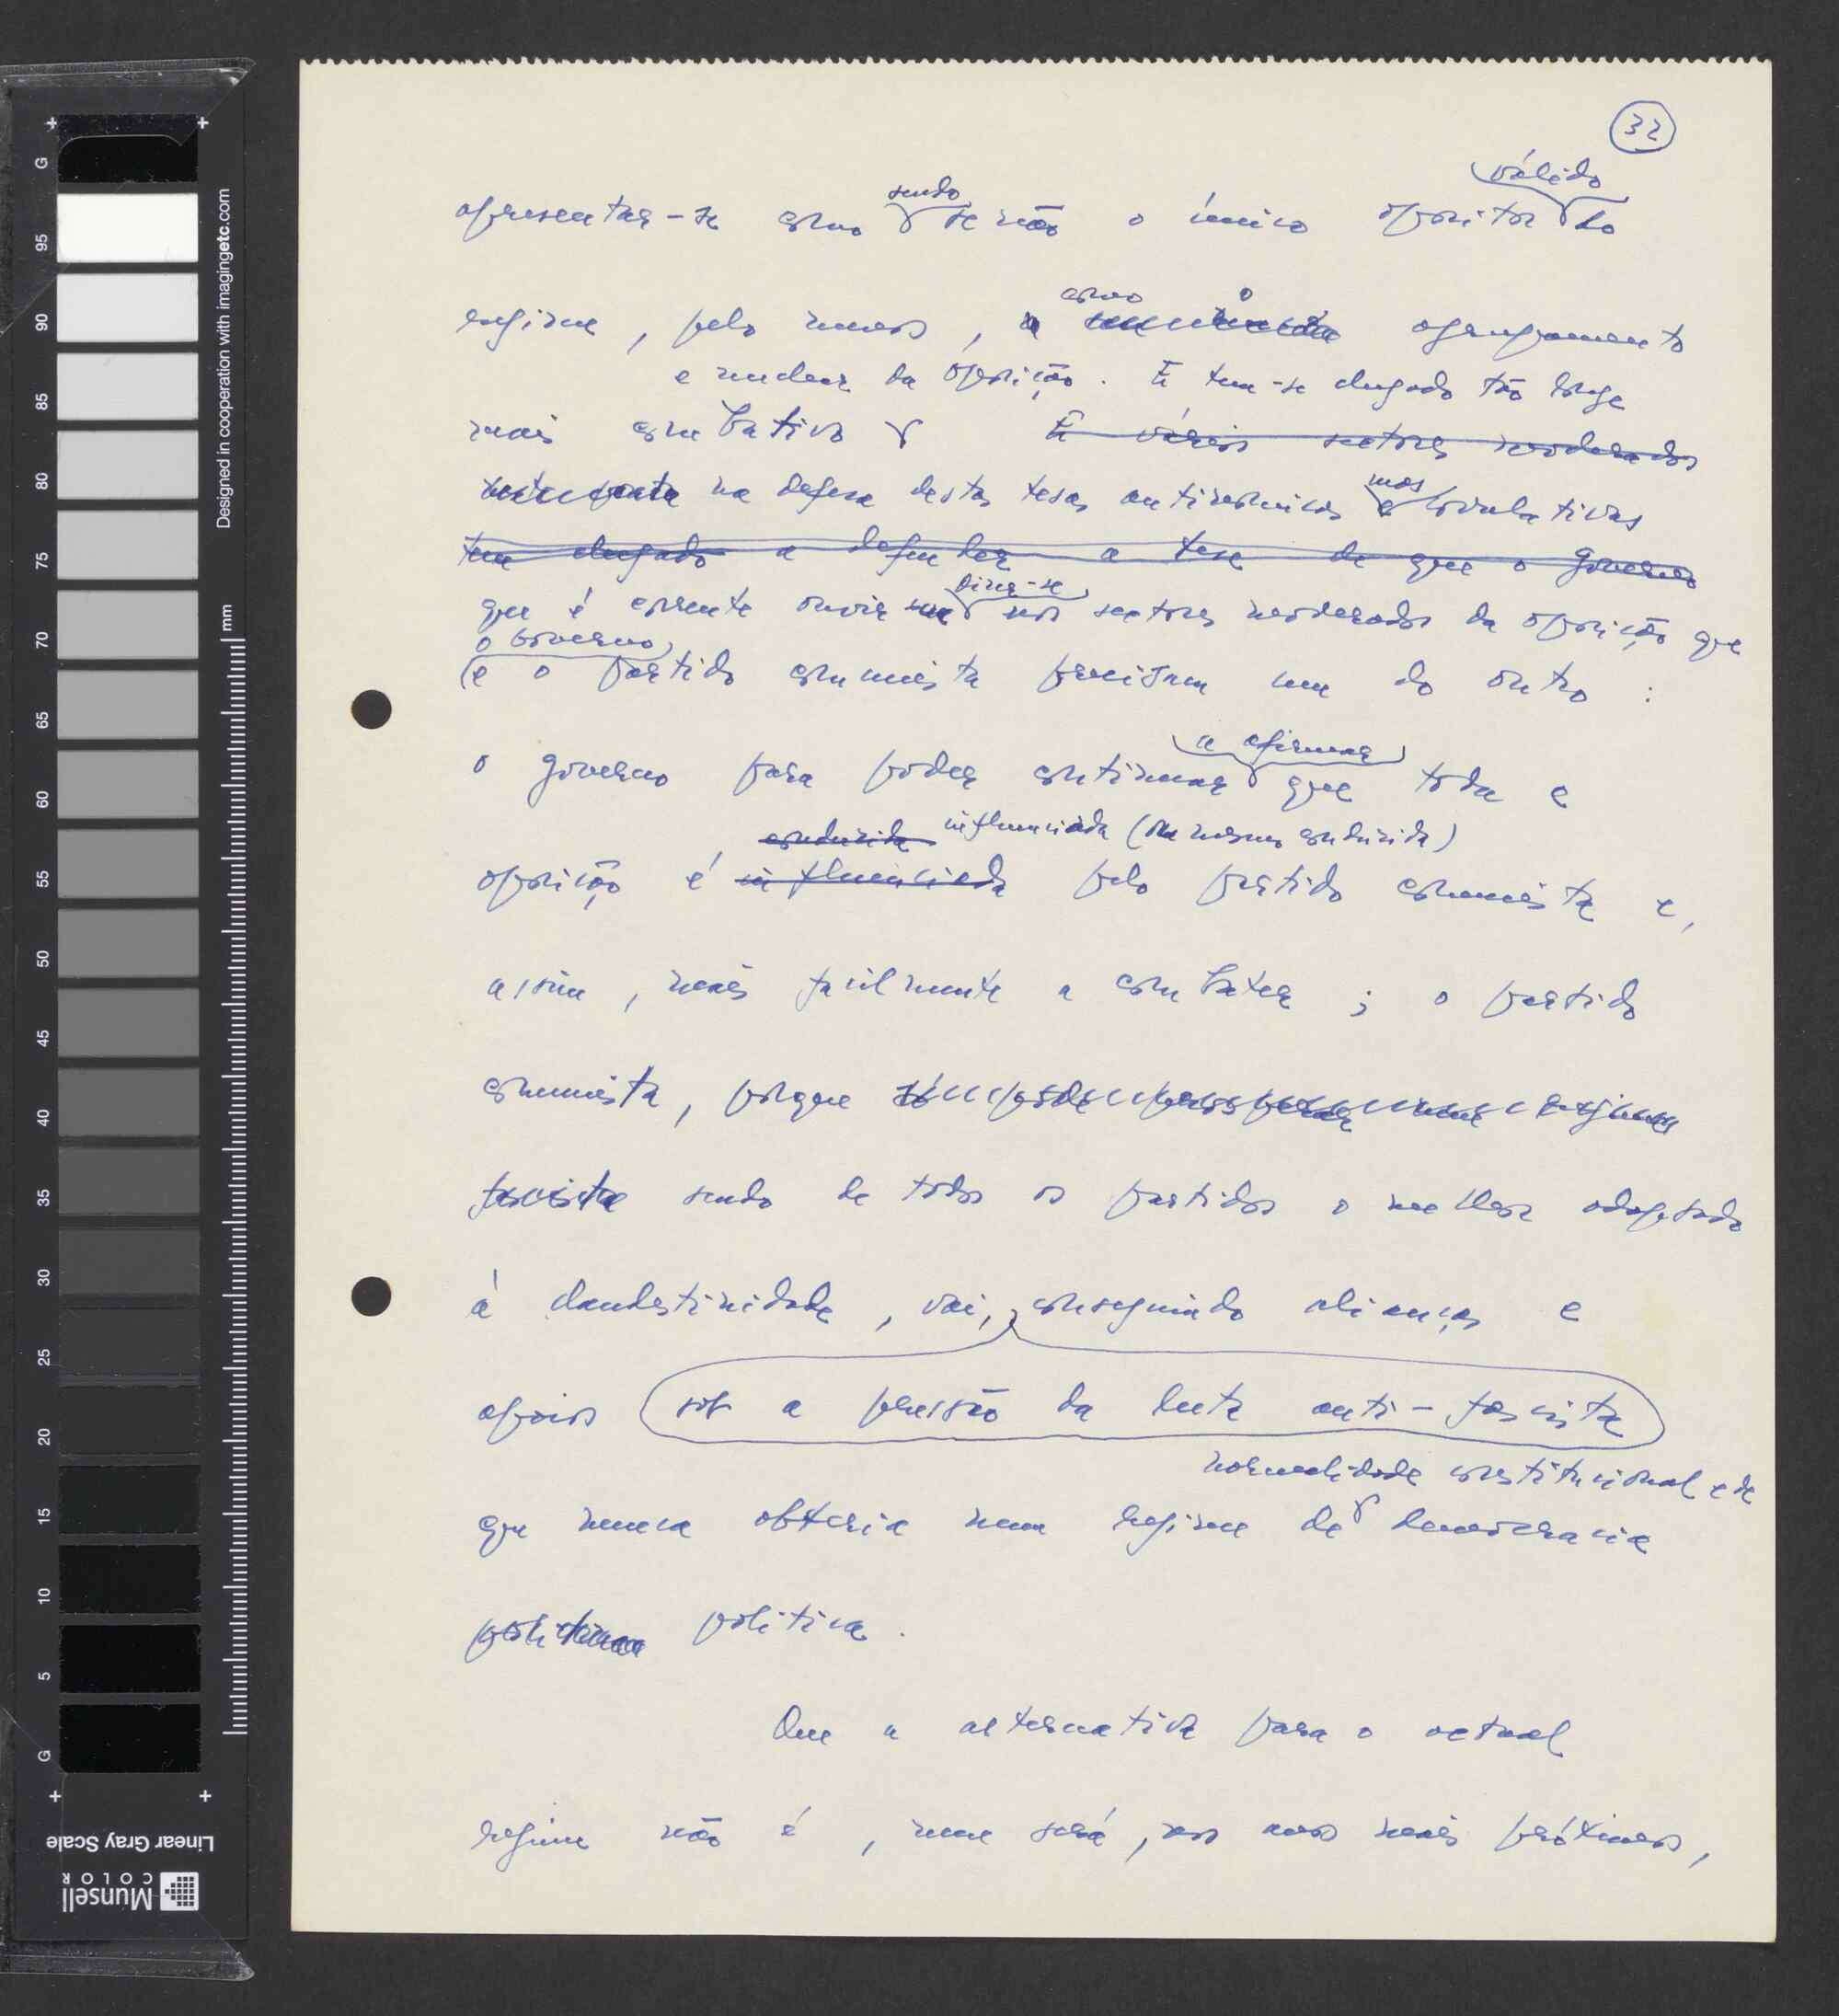 32
válido
sendo
apresentar-se como se não o único opositor do
como o
regime, pelo menos, agrupamento
e nuclear da oposição. E tem-se chegado tão longe
mais combativo E vários sectores moderados
na defesa destas teses antinómicas mas correlativas
tem chegado a defender a tese de que o governo
dizer-se
que é corrente ouvir nos sectores moderados da oposição que
o Governo
e o partido comunista precisam um do outro :
a afirmar
o governo para poder continuar que toda a
conduzida influenciada (ou mesmo conduzida)
oposição é influenciada pelo partido comunista e,
assim, mais facilmente a combater ; o partido
comunista, porque só pode prosperar num regime
fascista sendo de todos os partidos o melhor adaptado
à clandestinidade, vai, conseguindo alianças e
apoios sob a pressão da luta anti-fascista
normalidade constitucional e de
que nunca obteria num regime de democracia
política.
Que a alternativa para o actual
regime não é, nem será, nos anos mais próximos,
G
95
90
85
80
75
70
65
60
55
50
45
40
35
30
25
20
15
10
5
G
mm
Designed in cooperation with imagingetc.com
Linear Gray Scale
Munsell
COLOR